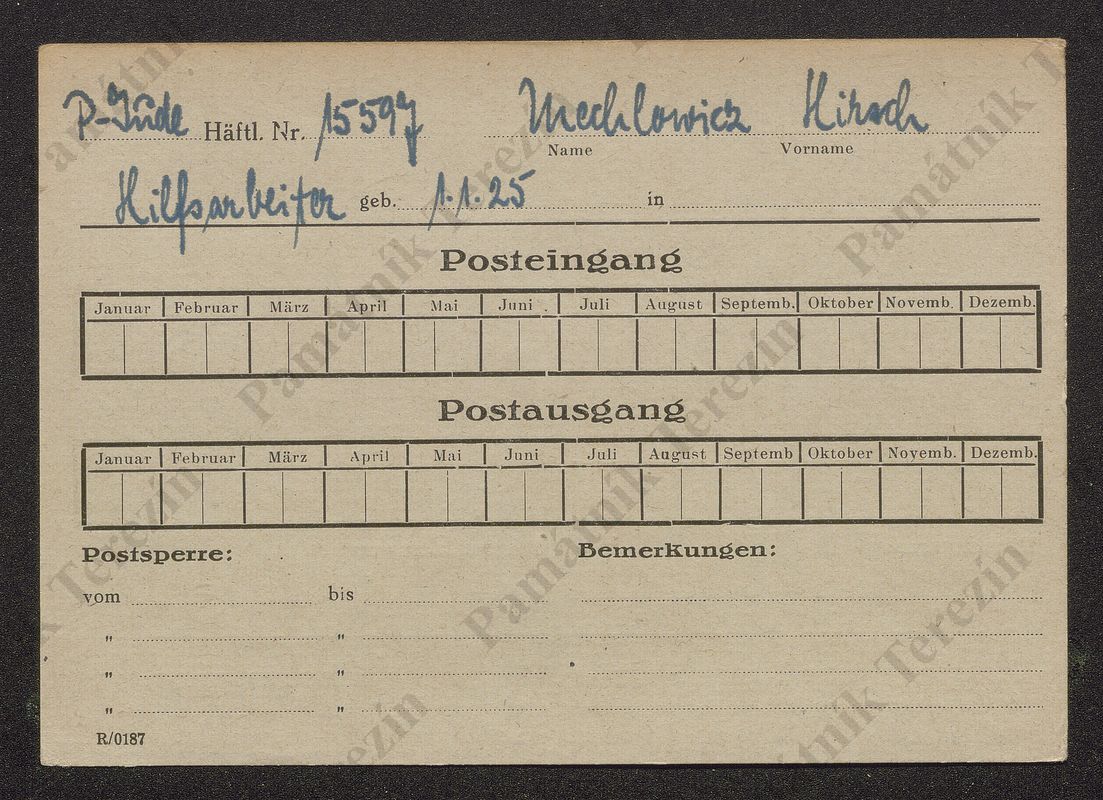 P-Jude Häftl. Nr. 15597 Mechlowicz Hirsch
Name Vorname
Hilfsarbeiter geb. 1.1.25 in
Posteingang
Januar Februar März April Mai Juni Juli August Septemb. Oktober Novemb. Dezemb.
Postausgang
Januar Februar März April Mai Juni Juli August Septemb Oktober Novemb. Dezemb.
Postsperre: Bemerkungen:
vom bis
" "
" "
" "
R/0187
Památník Terezín